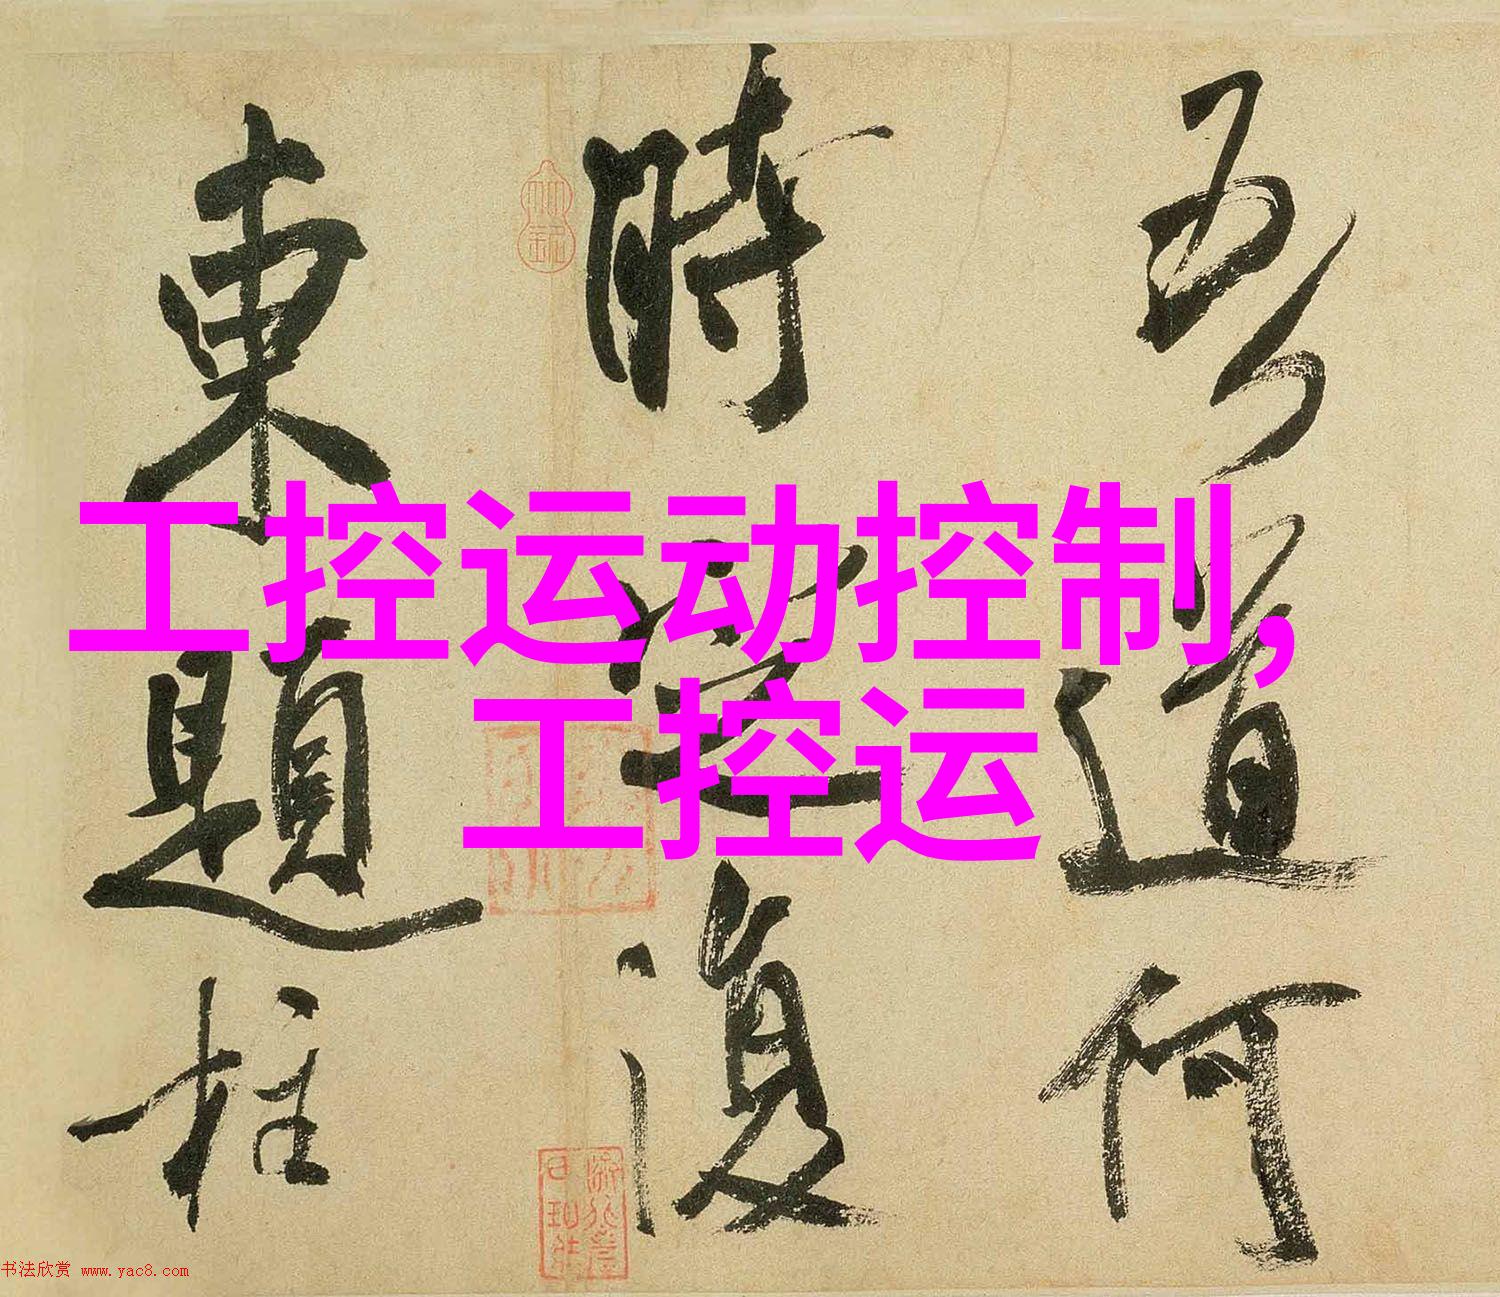 吾道何
時定復
東題柱
工控运动控制,
工控运
书法欣赏 www.yac8.com